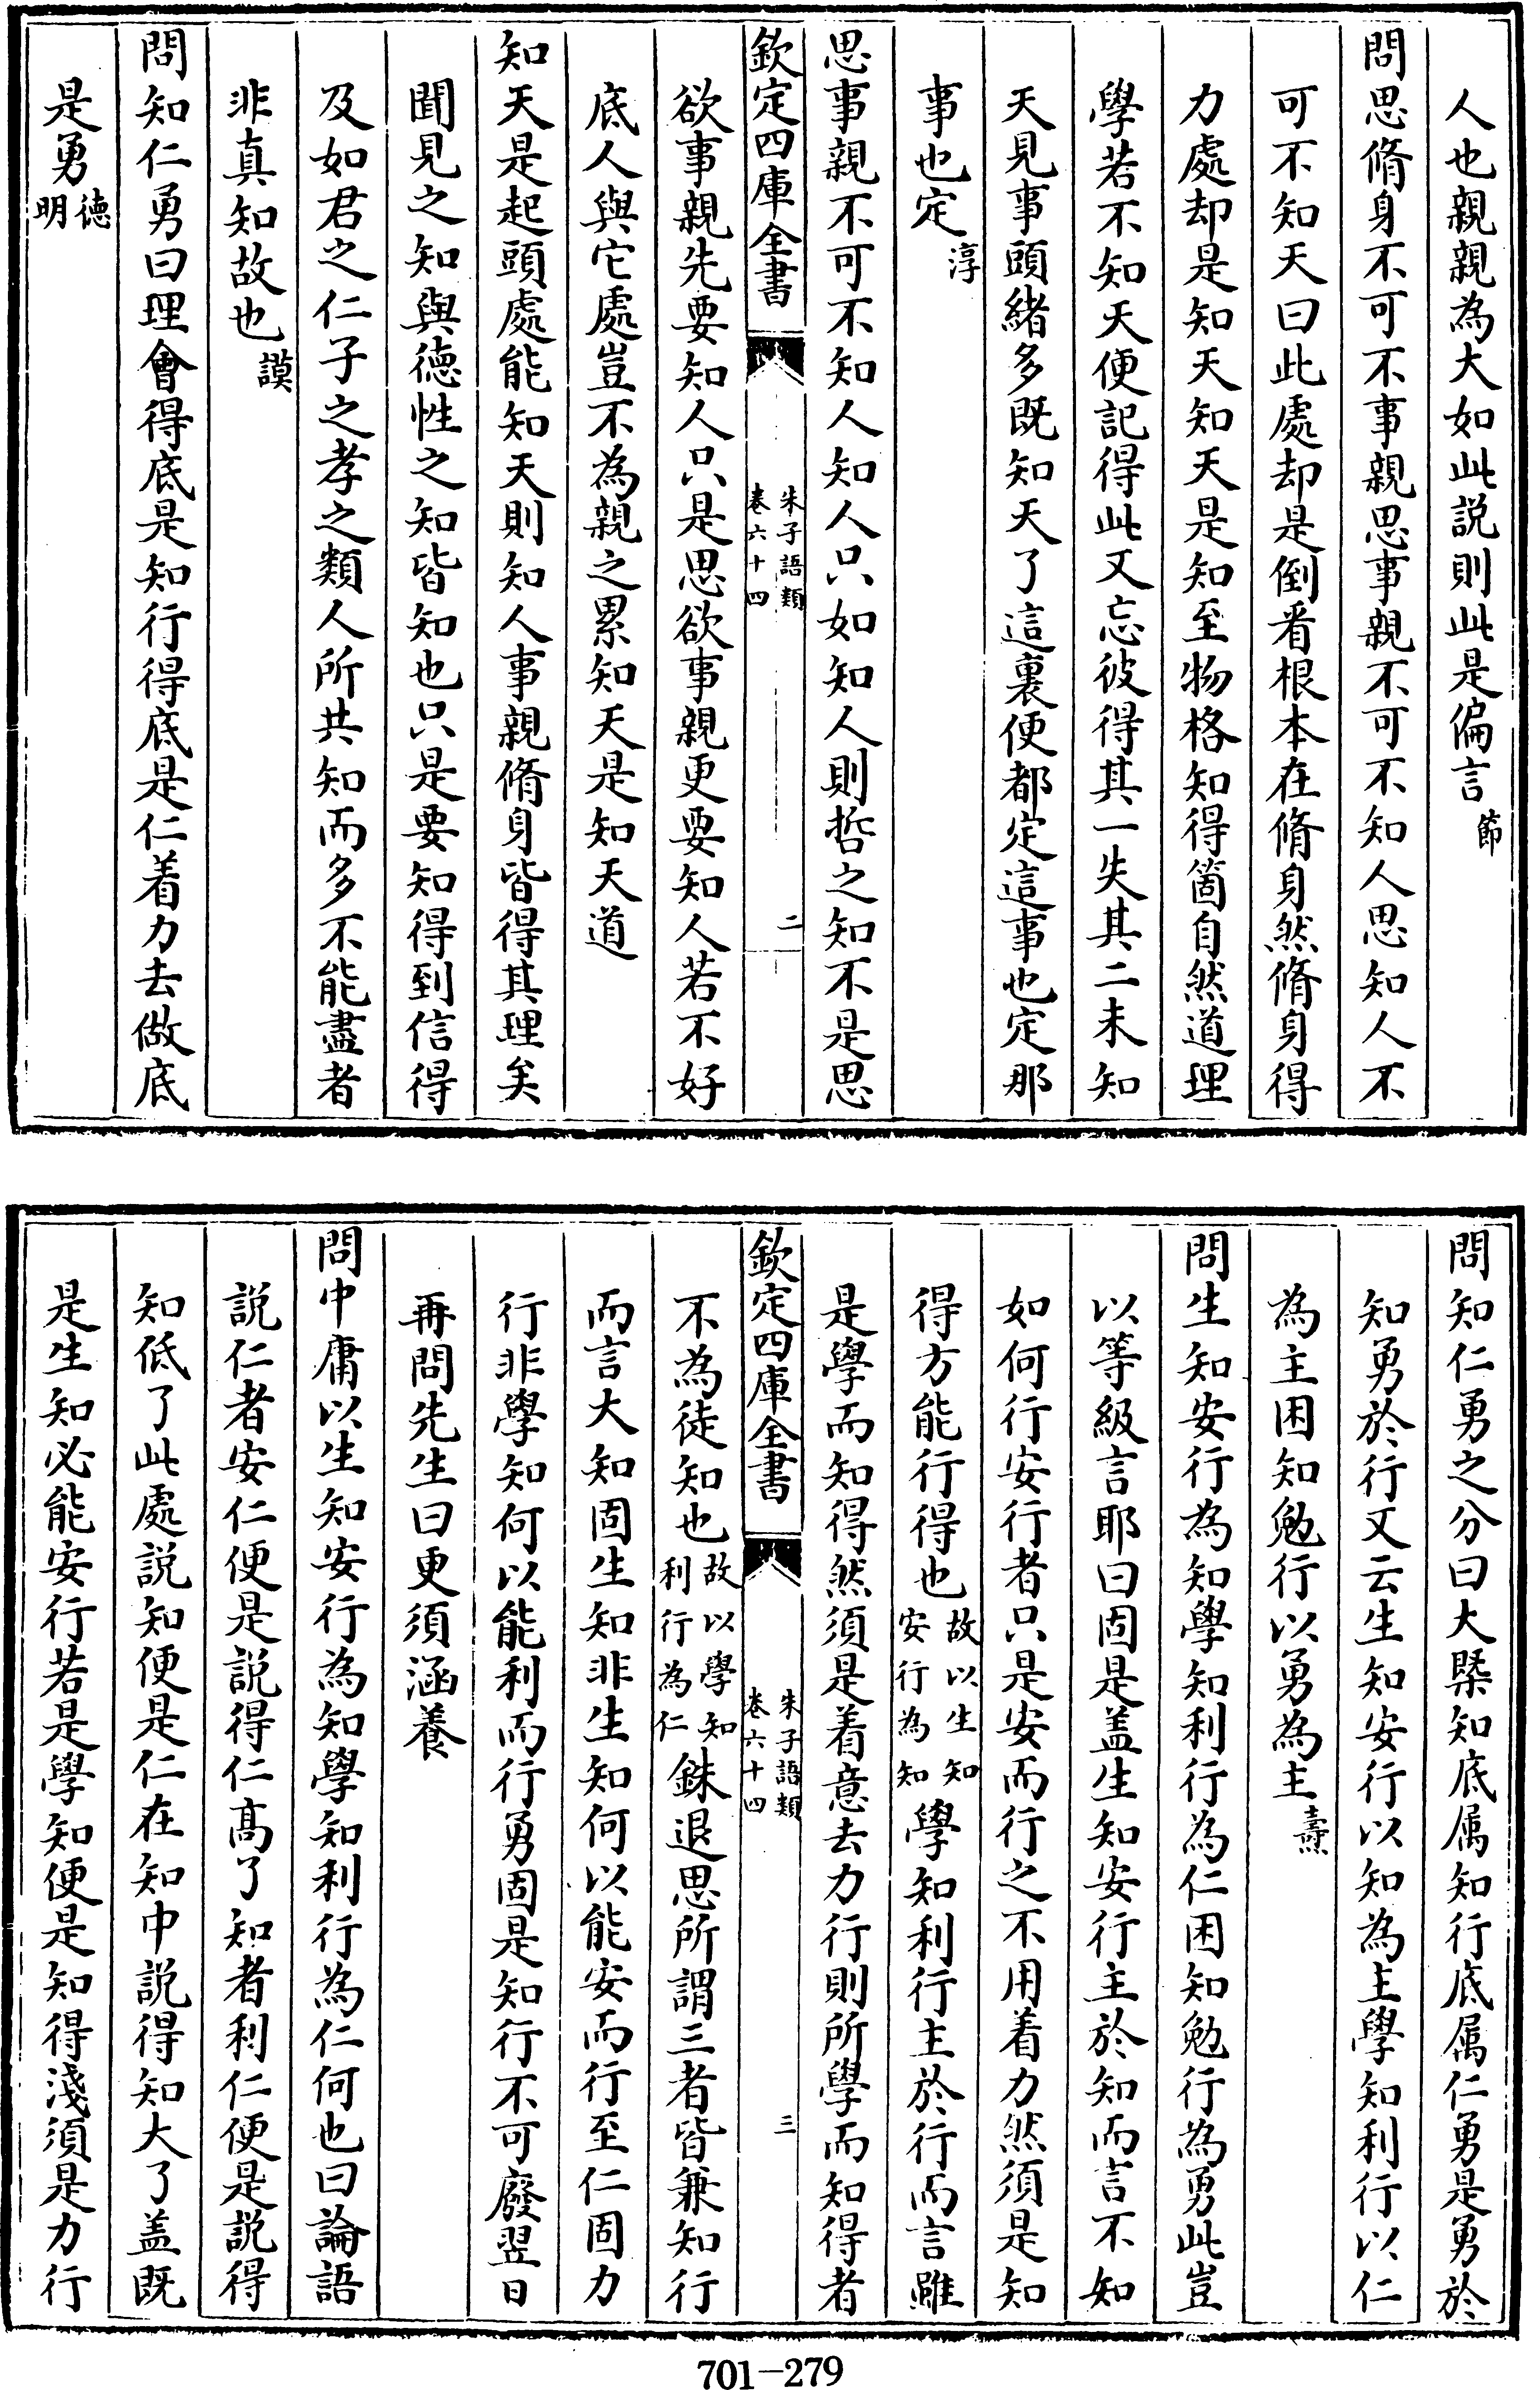 人也親親為大如此説則此是偏言節
問思脩身不可不事親思事親不可不知人思知人不
可不知天曰此處却是倒看根本在脩身然脩身得
力處却是知天知天是知至物格知得箇自然道理
學若不知天便記得此又忘彼得其一失其二未知
天見事頭緒多既知天了這裏便都定這事也定那
事也定淳
思事親不可不知人知人只如知人則哲之知不是思
欽定四庫全書
朱子語類
卷六十四
二
欲事親先要知人只是思欲事親更要知人若不好
底人與它處豈不為親之累知天是知天道
知天是起頭處能知天則知人事親脩身皆得其理矣
聞見之知與德性之知皆知也只是要知得到信得
及如君之仁子之孝之類人所共知而多不能盡者
非真知故也謨
問知仁勇曰理會得底是知行得底是仁着力去做底
是勇德明
問知仁勇之分曰大槩知底属知行底属仁勇是勇於
知勇於行又云生知安行以知為主學知利行以仁
為主困知勉行以勇為主壽
問生知安行為知學知利行為仁困知勉行為勇此豈
以等級言耶曰固是盖生知安行主於知而言不知
如何行安行者只是安而行之不用着力然須是知
得方能行得也故以生知安行為知學知利行主於行而言雖
是學而知得然須是着意去力行則所學而知得者
欽定四庫全書
朱子語類
卷六十四
三
不為徒知也故以學知利行為仁銖退思所謂三者皆兼知行
而言大知固生知非生知何以能安而行至仁固力
行非學知何以能利而行勇固是知行不可廢翌日
再問先生曰更須涵養
問中庸以生知安行為知學知利行為仁何也曰論語
説仁者安仁便是説得仁髙了知者利仁便是説得
知低了此處説知便是仁在知中説得知大了盖既
是生知必能安行若是學知便是知得淺須是力行
701-279